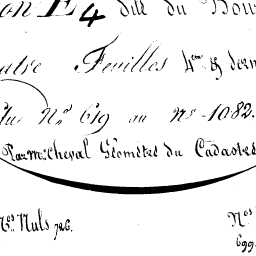 on E 4 dite du Bou
atre Feuilles 4eme & dern
du No 619 au No 1082.
Par Mr. Cheval Géomètre du Cadastre
Nos Nuls 726. Nos
699